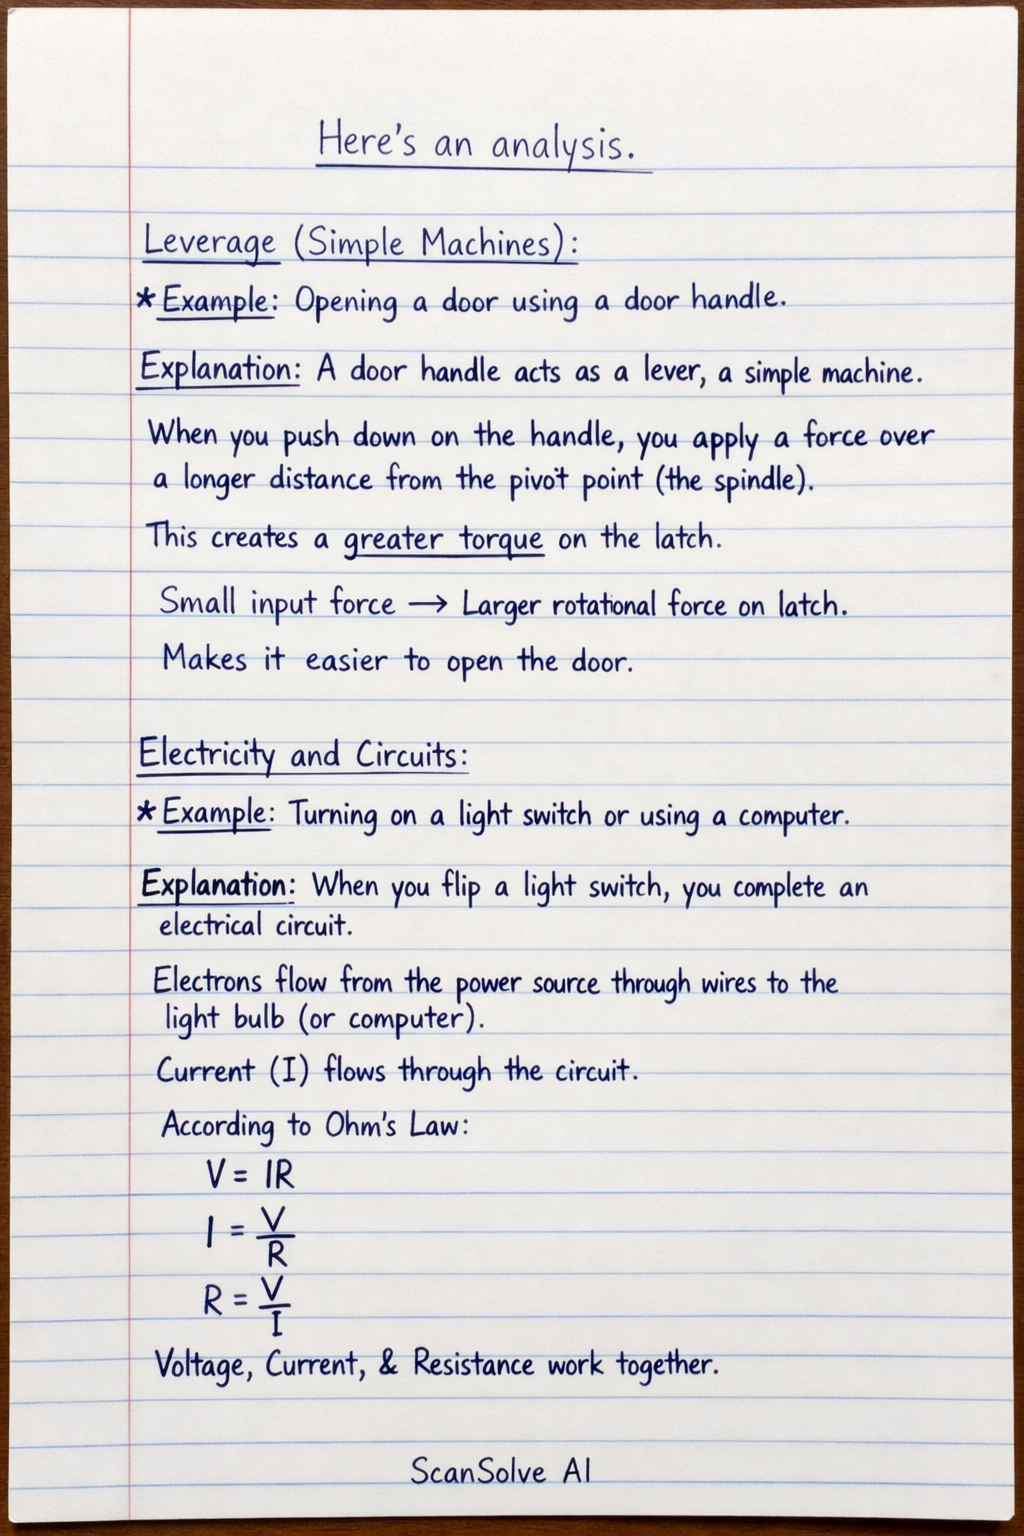 Here's an analysis.
Leverage (Simple Machines):
*Example: Opening a door using a door handle.
Explanation: A door handle acts as a lever, a simple machine.
When you push down on the handle, you apply a force over
a longer distance from the pivot point (the spindle).
This creates a greater torque on the latch.
Small input force → Larger rotational force on latch.
Makes it easier to open the door.
Electricity and Circuits:
*Example: Turning on a light switch or using a computer.
Explanation: When you flip a light switch, you complete an
electrical circuit.
Electrons flow from the power source through wires to the
light bulb (or computer).
Current (I) flows through the circuit.
According to Ohm's Law:
V = IR
I = V/R
R = V/I
Voltage, Current, & Resistance work together.
ScanSolve AI